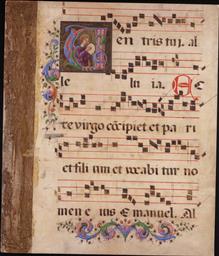 en tris tu i. al
le lu ia. E
ce virgo cōcipiet et pa ri
et fili um et vocabi tur no
men e ius Emanuel. Al